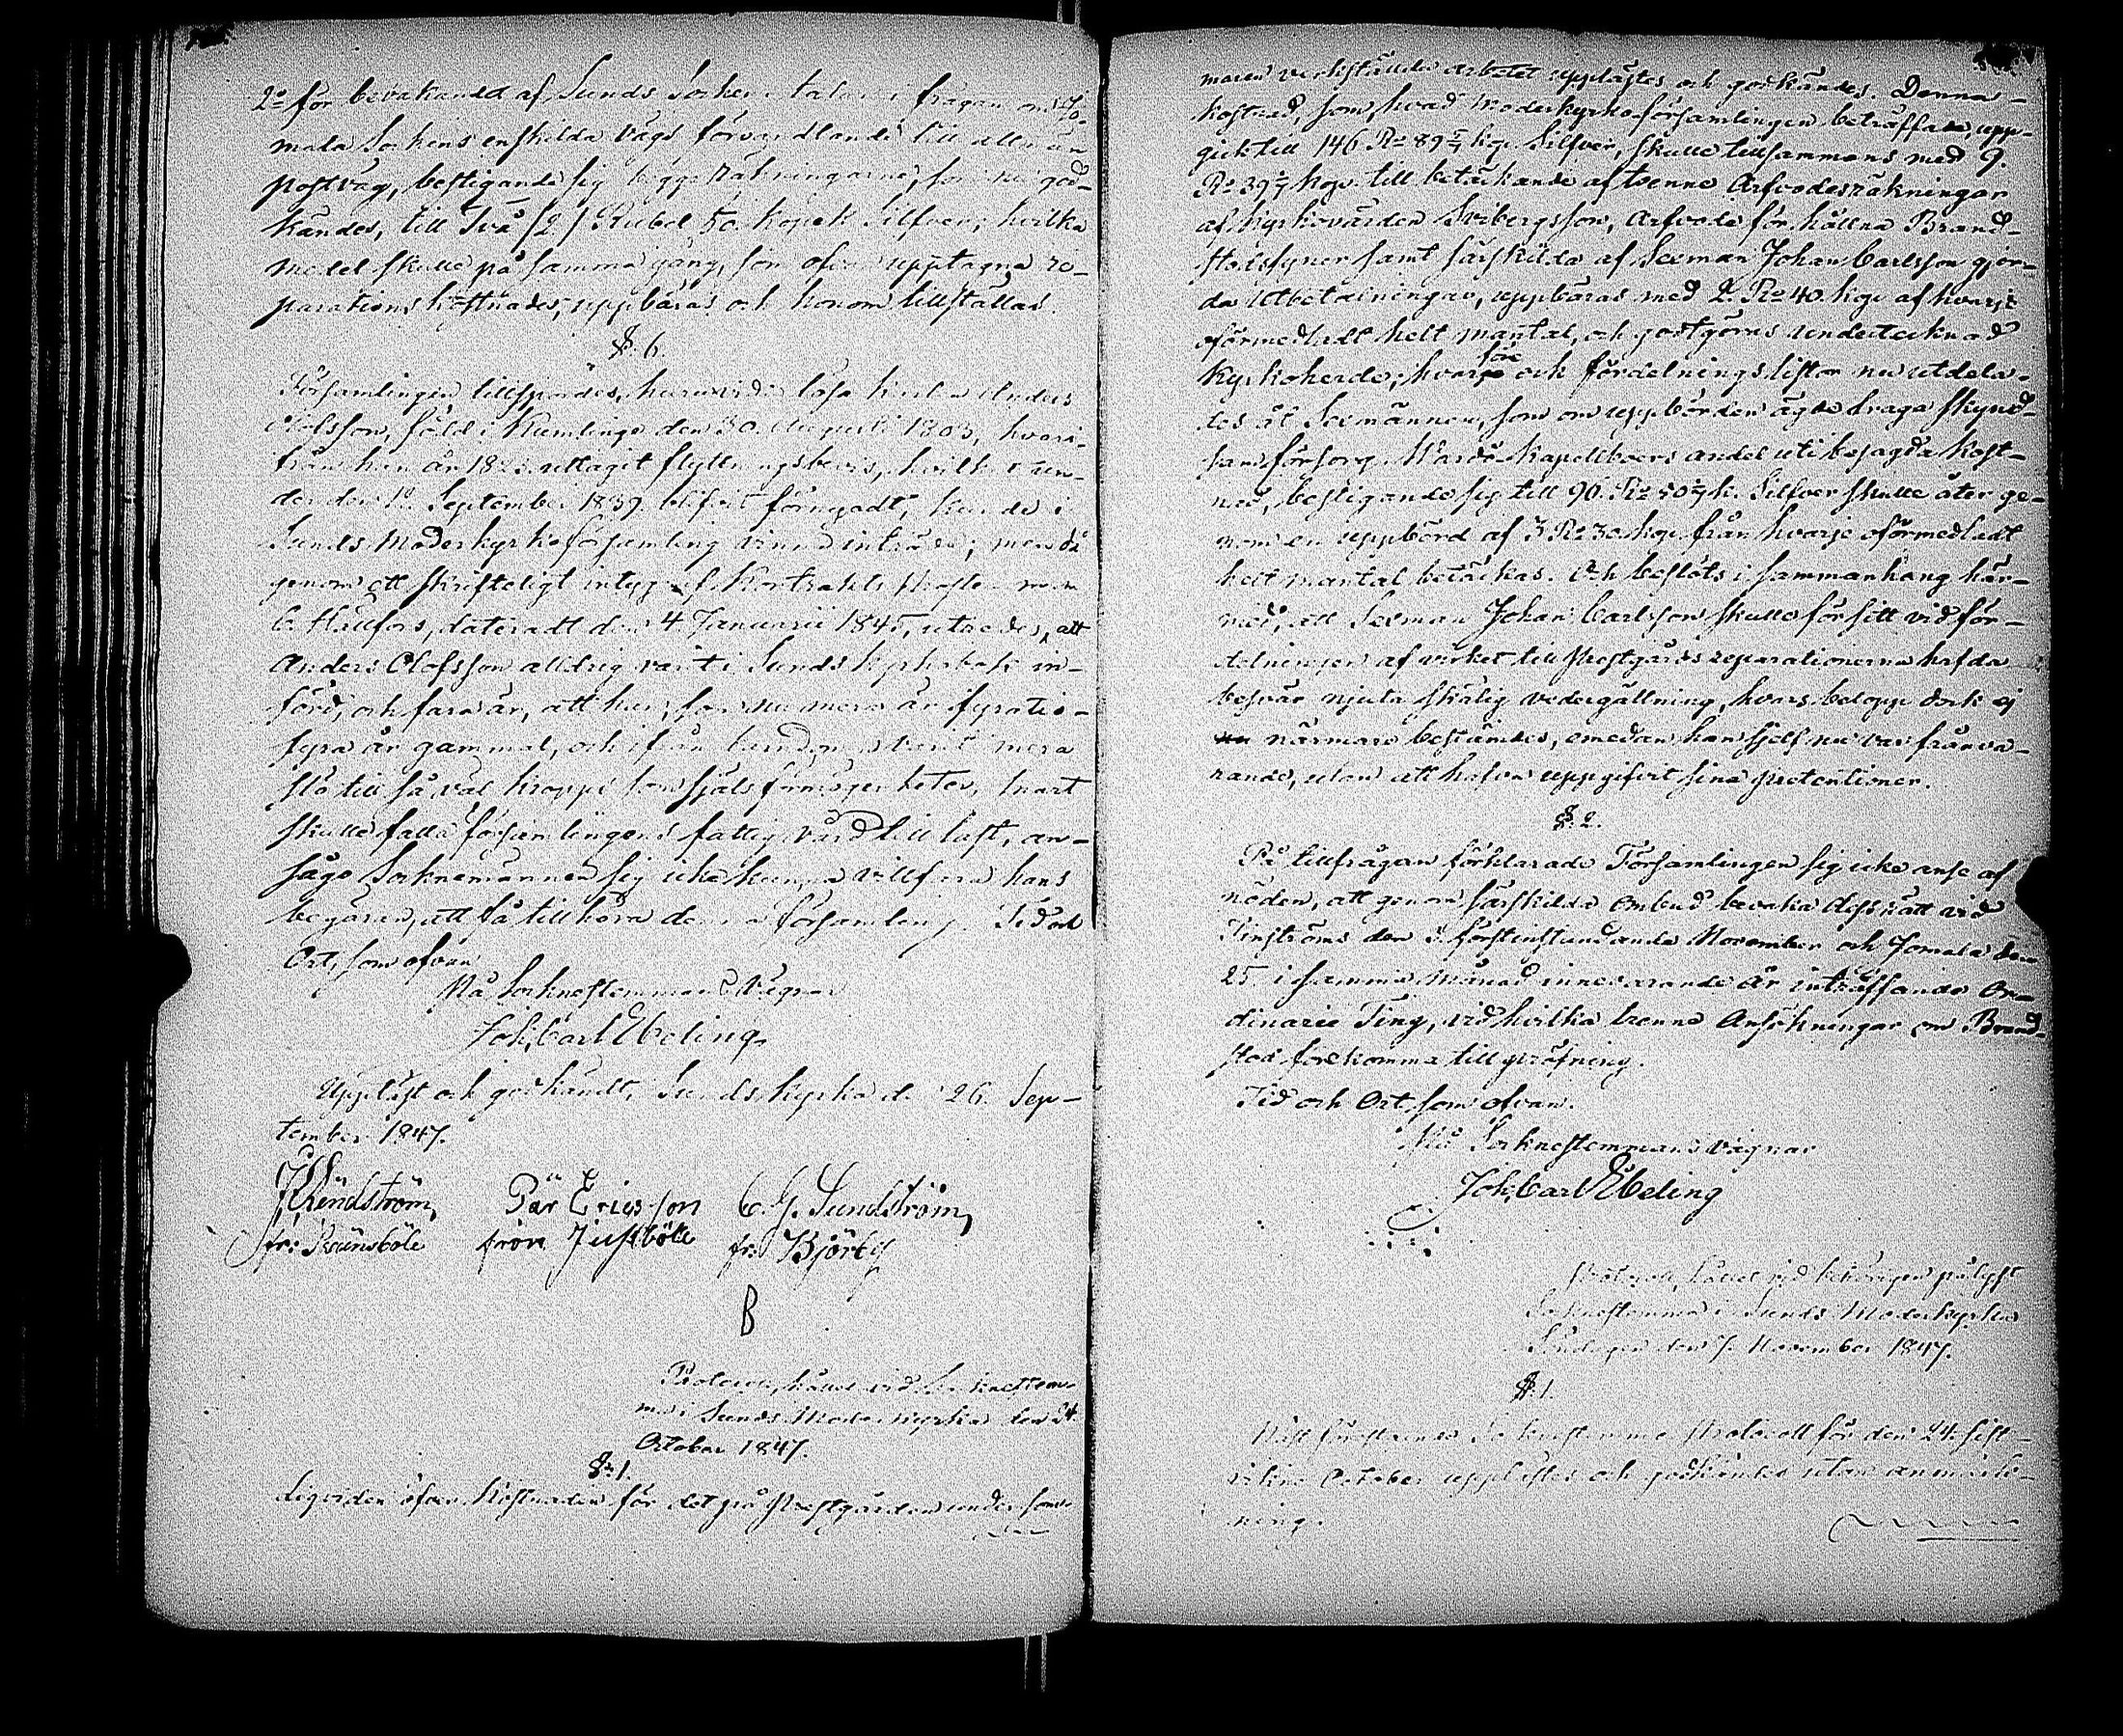 2:o för bevakandet af Sunds Sockens talan i frågan om Jo-
mala Sockens enskilda vägs förvandlande till allmän
postväg, bestigande sig bägge räkningarne, som nu god-
kändes, till Två /2/ Rubel 50. kopek Silfver; hvilka
medel skulle på samma gång, som ofvan upptagna re-
parationskostnader, uppbäras och honom tillställas.
§. 6.
Församlingen tillspordes, huruvida lösa karlen Anders
Olofsson, född i Kumlinge den 30. Augusti 1803, hvari-
från han år uttagit flyttningsbevis, hvilket un-
der den 10. September 1839 blifvit förnyadt, kunde i
Sunds Moderkyrkoförsamling vinna inträde; men då
genom ett skrifteligt intyg af Kontrakts Prosten m.m
C. Hällfors, dateradt den 4. Januarii 1845, utreddes, att
Anders Olofsson alldrig varit i Sunds Kyrkobok in-
förd, och fara är, att han, som nu mera är fyratio-
fyra år gammal, och ifrån barndomen varit mera
slö till så väl kropps som själsförmögenheter, snart
skulle falla församlingens fattigvård till last, an-
sågo Socknemännen sig icke kunna villfara hans
begäran, att få tillhöra denna församling. Tid och
Ort, som ofvan.
På Socknestemmans vägnar
Joh. Carl Ebeling.
Uppläst och godkändt, i Sunds kyrka d. 26. Sep-
tember 1847.
Sundström, Pär Ericsson C. G. Sundström,
fr: Brünsböle från Jussböle fr: Björby
B
Protocoll, hållet vid Socknestem-
ma i Sunds Moderkyrka den 24.
October 1847.
§: 1.
Liqviden öfver kostnaden för det på Prestgården under som-
maren verkställda arbetet upplästes och godkändes. Denna
kostnad, som, hvad Moderkyrkoförsamlingen beträffade, upp-
gick till 146 R:o 89 2/7 kop. Silfver, skulle tillsammans med 9.
R:o 39 2/7 kop. till betäckande af tvenne Arfvodesräkningar
af kyrkovärden Sribergsson, Arfvode för hållna Brand-
stodssyner samt särskilda af Sexman Johan Carlsson gjor-
da utbetalningar, uppbäras med 2. R:o 40. kop. af hvarje
oförmedladt helt mantal, och godtgöras undertecknad
Kyrkoherde; hvarföre och fördelningslistor nu utdela-
des åt Sexmännen, som om uppbörden ägde draga skynd-
sam försorg. Wårdö Kapellboers andel uti besagda kost-
nad, bestigande sig till 90. R:o 50 2/7 k. Silfver skulle åter ge-
nom en uppbörd af 3 R:o 30. kop. från hvarje oförmedladt
helt mantal betäckas. Och beslöts i sammanhang här-
med, att Sexman Johan Carlsson skulle för sitt vid för-
delningen af virket till Prestgårds reparationerna hafda
besvär njuta skälig vedergällning, hvars belopp dock ej
nu närmare bestämdes, emedan han sjelf nu var frånva-
rande, utan att hafva uppgifvit sina pretentioner.
§: 2.
På tillfrågan förklarade Församlingen sig icke anse af
nöden, att genom särskilda Ombud bevaka dess rätt vid
Finströms den 3. förstinstundande November och Jomala den
25. i samma månad innevarande år inträffande Or-
dinarie Ting, vid hvilka trenne Ansökningar om Brand-
stod förekomma till pröfning.
Tid och Ort, som ofvan.
På Socknestemmans vägnar
Joh. Carl Ebeling
Protocoll, hållet vid behörigen pålyst
Socknestemma i Sunds Moderkyrka
Söndagen den 7. November 1847.
§. 1.
Näst föregående Socknestemmo Protocoll för den 24. sist-
vikne October upplästes och godkändes utan anmärk-
ning.